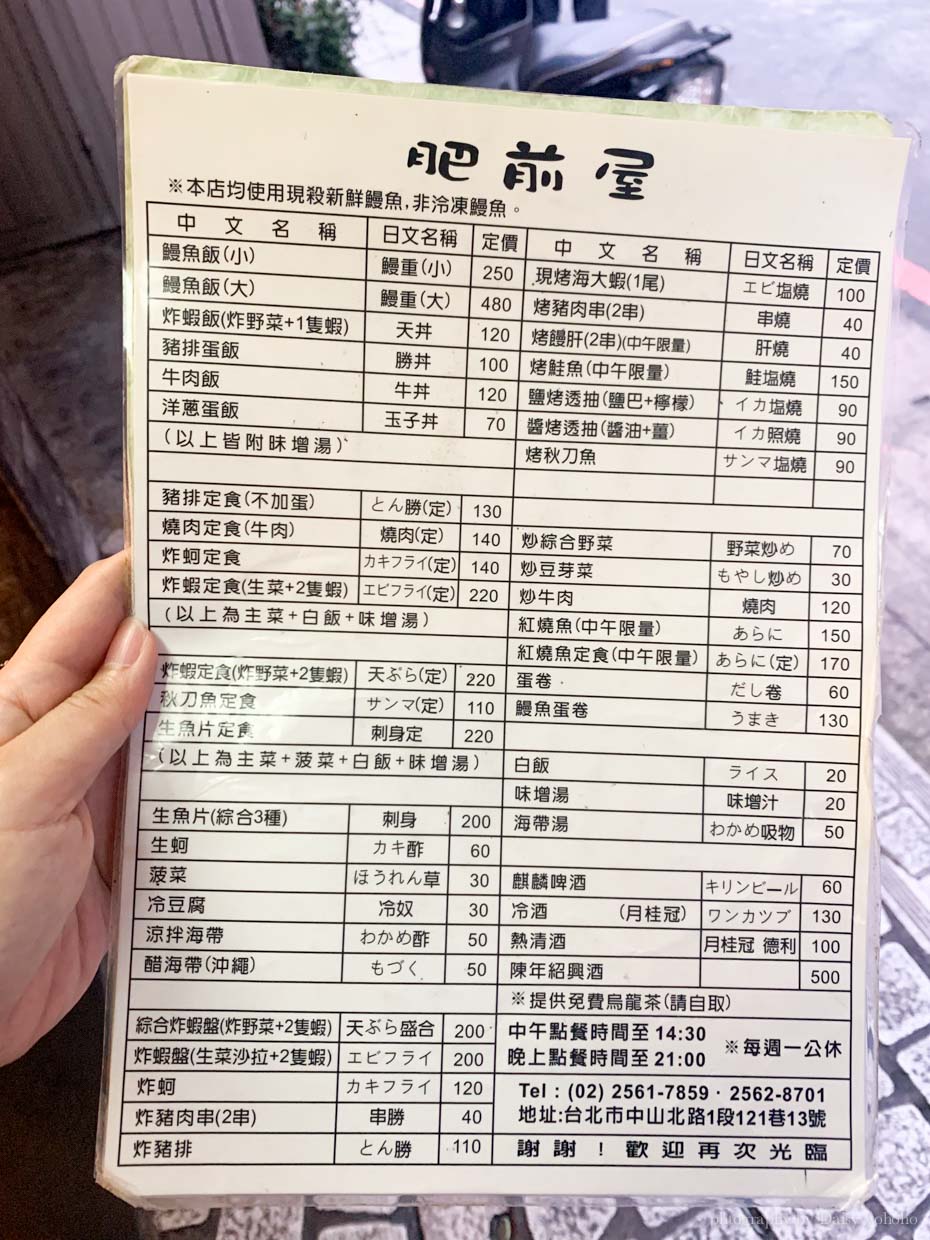 肥前屋
※本店均使用現殺新鮮鰻魚,非冷凍鰻魚。
中文名稱 日文名稱 定價
鰻魚飯(小) 鰻重(小) 250
鰻魚飯(大) 鰻重(大) 480
炸蝦飯(炸野菜+1隻蝦) 天丼 120
豬排蛋飯 勝丼 100
牛肉飯 牛丼 120
洋蔥蛋飯 玉子丼 70
(以上皆附味增湯)
豬排定食(不加蛋) とん勝(定) 130
燒肉定食(牛肉) 燒肉(定) 140
炸蚵定食 カキフライ(定) 140
炸蝦定食(生菜+2隻蝦) エビフライ(定) 220
(以上為主菜+白飯+味增湯)
炸蝦定食(炸野菜+2隻蝦) 天ぷら(定) 220
秋刀魚定食 サンマ(定) 110
生魚片定食 刺身定 220
(以上為主菜+菠菜+白飯+味增湯)
生魚片(綜合3種) 刺身 200
生蚵 カキ酢 60
菠菜 ほうれん草 30
冷豆腐 冷奴 30
涼拌海帶 わかめ酢 50
醋海帶(沖繩) もづく 50
綜合炸蝦盤(炸野菜+2隻蝦) 天ぷら盛合 200
炸蝦盤(生菜沙拉+2隻蝦) エビフライ 200
炸蚵 カキフライ 120
炸豬肉串(2串) 串勝 40
炸豬排 とん勝 110
中文名稱 日文名稱 定價
現烤海大蝦(1尾) エビ塩燒 100
烤豬肉串(2串) 串燒 40
烤饅肝(2串)(中午限量) 肝燒 40
烤鮭魚(中午限量) 鮭塩燒 150
鹽烤透抽(鹽巴+檸檬) イカ塩燒 90
醬烤透抽(醬油+薑) イカ照燒 90
烤秋刀魚 サンマ塩燒 90
炒綜合野菜 野菜炒め 70
炒豆芽菜 もやし炒め 30
炒牛肉 燒肉 120
紅燒魚(中午限量) あらに 150
紅燒魚定食(中午限量) あらに(定) 170
蛋卷 だし卷 60
鰻魚蛋卷 うまき 130
白飯 ライス 20
味增湯 味增汁 20
海帶湯 わかめ吸物 50
麒麟啤酒 キリンビール 60
冷酒 (月桂冠) ワンカツブ 130
熱清酒 月桂冠 德利 100
陳年紹興酒 500
※提供免費烏龍茶(請自取)
中午點餐時間至 14:30
晚上點餐時間至 21:00
※每週一公休
Tel : (02) 2561-7859 · 2562-8701
地址:台北市中山北路1段121巷13號
謝謝!歡迎再次光臨